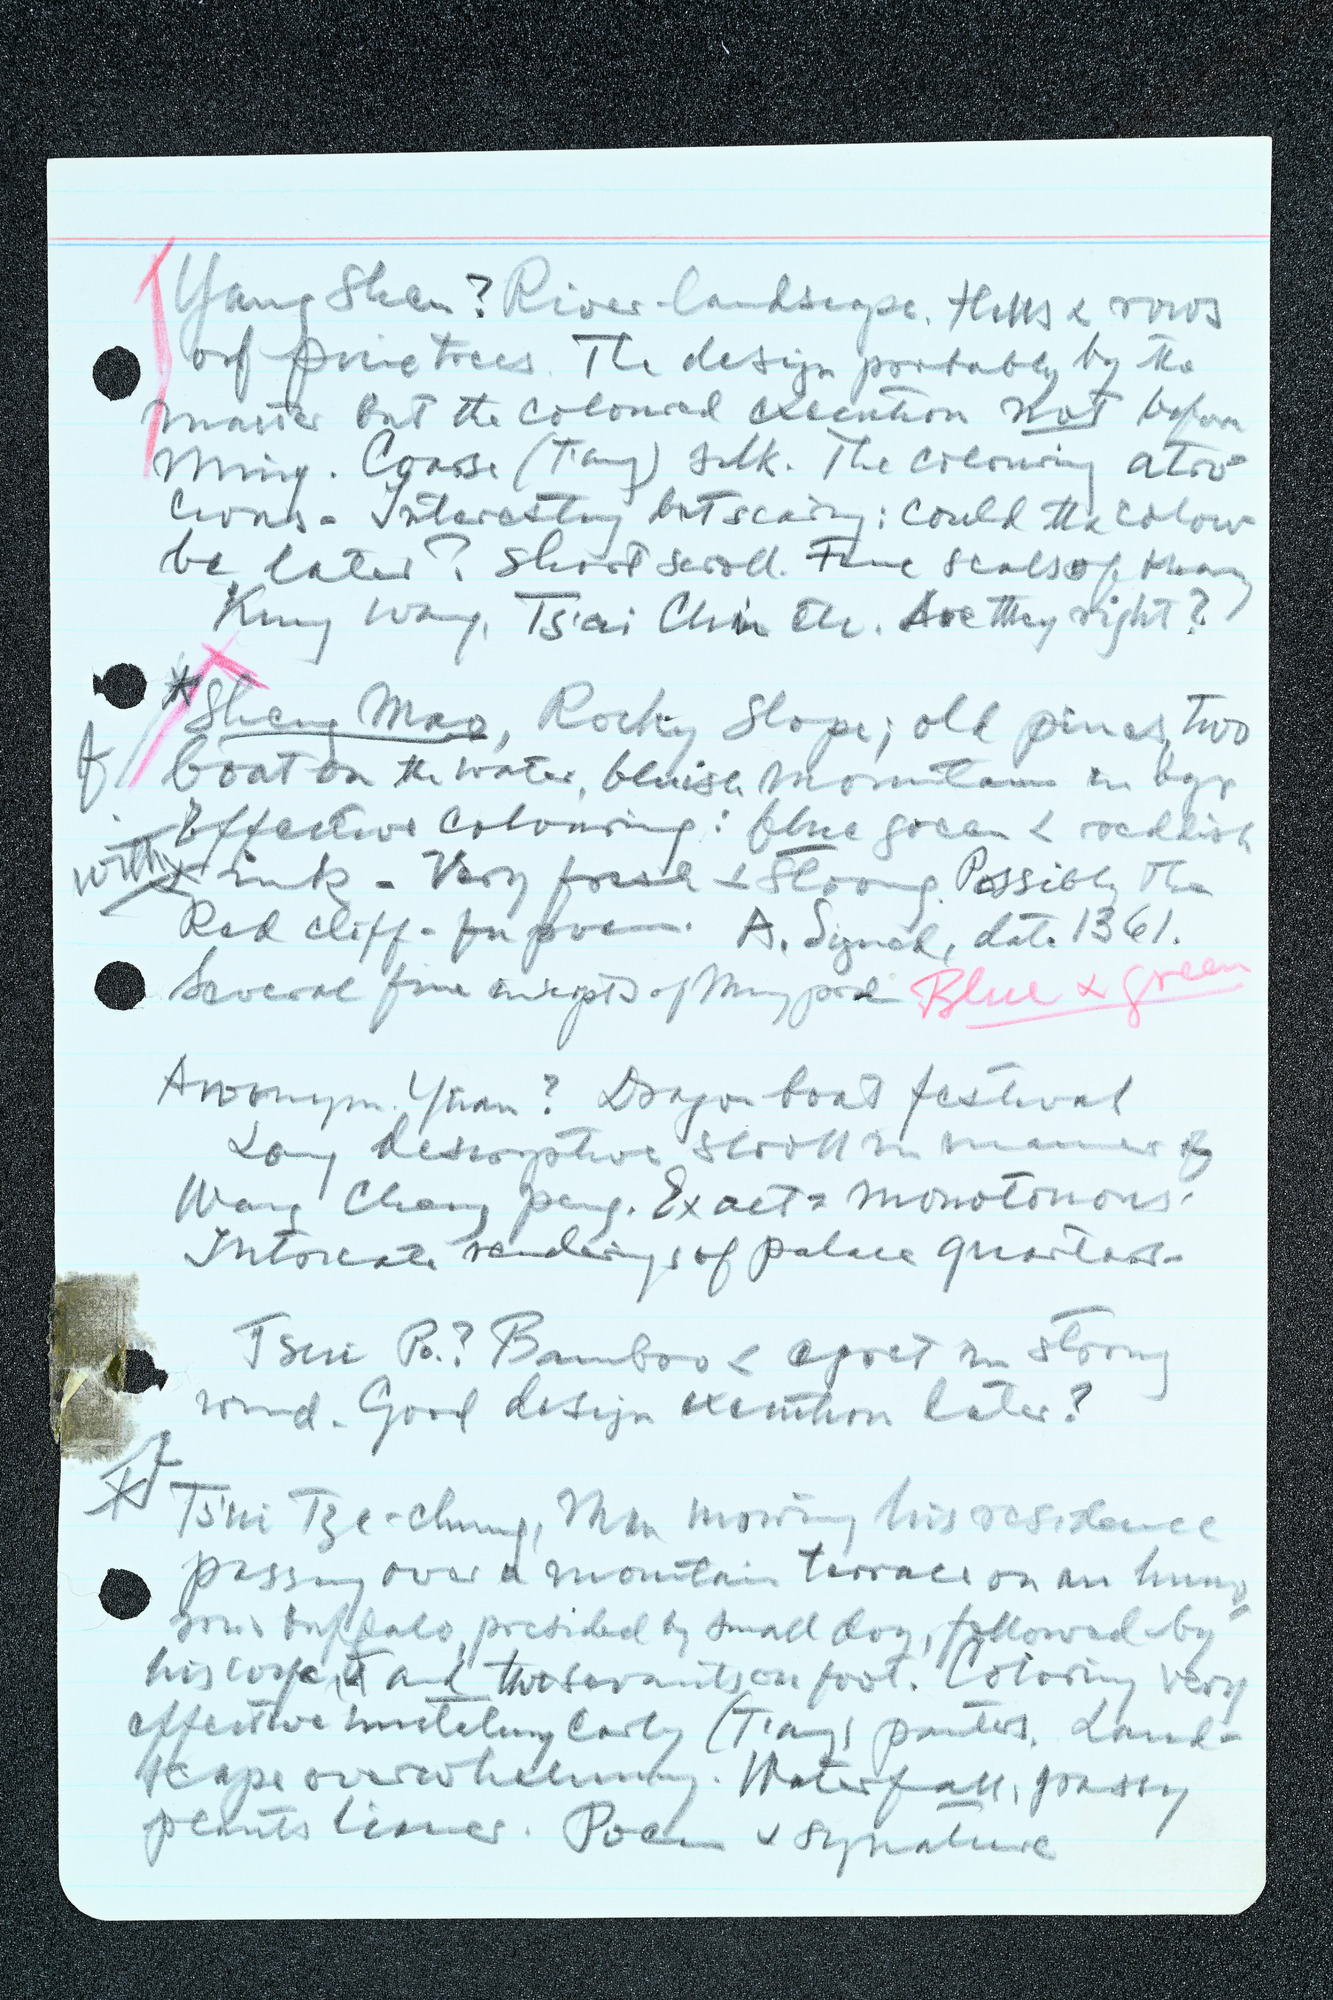 Yang Shen? River landscape. Hills & rows
of pinetrees. The design portably by the
master but the coloured execution not before
Ming. Coarse (T'ang) silk. The colouring atro-
cious. Interesting but scary: could the colour
be later? Short scroll. Fine seals of
Kung Wang, Ts'ai Chin etc. Are they right?
* Sheng Mao, Rocky Slope; old pines, two
boat on the water, bluish mountains in bgr
Effective colouring: blue green & reddish
with ink - Very fresh & strong. Possibly the
Red cliff - poem. A. Signed, date 1361.
Several fine inscripts of Ming Blue & green
Anonym. Yüan? Dragon boat festival
Long descriptive scroll in manner of
Wang Cheng peng. Exact = monotonous.
Intricate renderings of palace quarters.
Tsui Po.? Bamboo & egret in strong
wind. Good design execution later?
Ts'ui Tze-chung, Man moving his residence
passing over a mountain terrace on an humo-
rous buffalo, presided by small dog, followed by
his wife, and two servants on foot. Coloring very
effective imitating early (T'ang) painters. Land-
scape overwhelming. Waterfall, grassy
plants Poem & signature